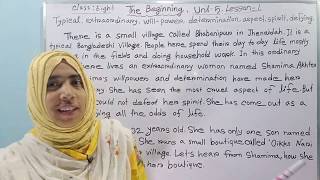 Class: Eight The Beginning, Unit-5, Lesson-1
Typical, extraordinary, will-power, determination, aspect, spirit, defying
There is a small village called Bhabanipur in Jhenaidah. It is a
typical Bangladeshi village. People here spend their day to day life mostly
in the fields and doing household work. In this ordinary
there lives an extraordinary woman named Shamima Akhter
ima's willpower and determination have made her
She has seen the most cruel aspect of life. But
could not defeat her spirit. She has come out as a
ing all the odds of life.
32 years old. She has only one son named
She runs a small boutique called 'Oikko Nari
village. Let's hear from Shamima, how she
her boutique.